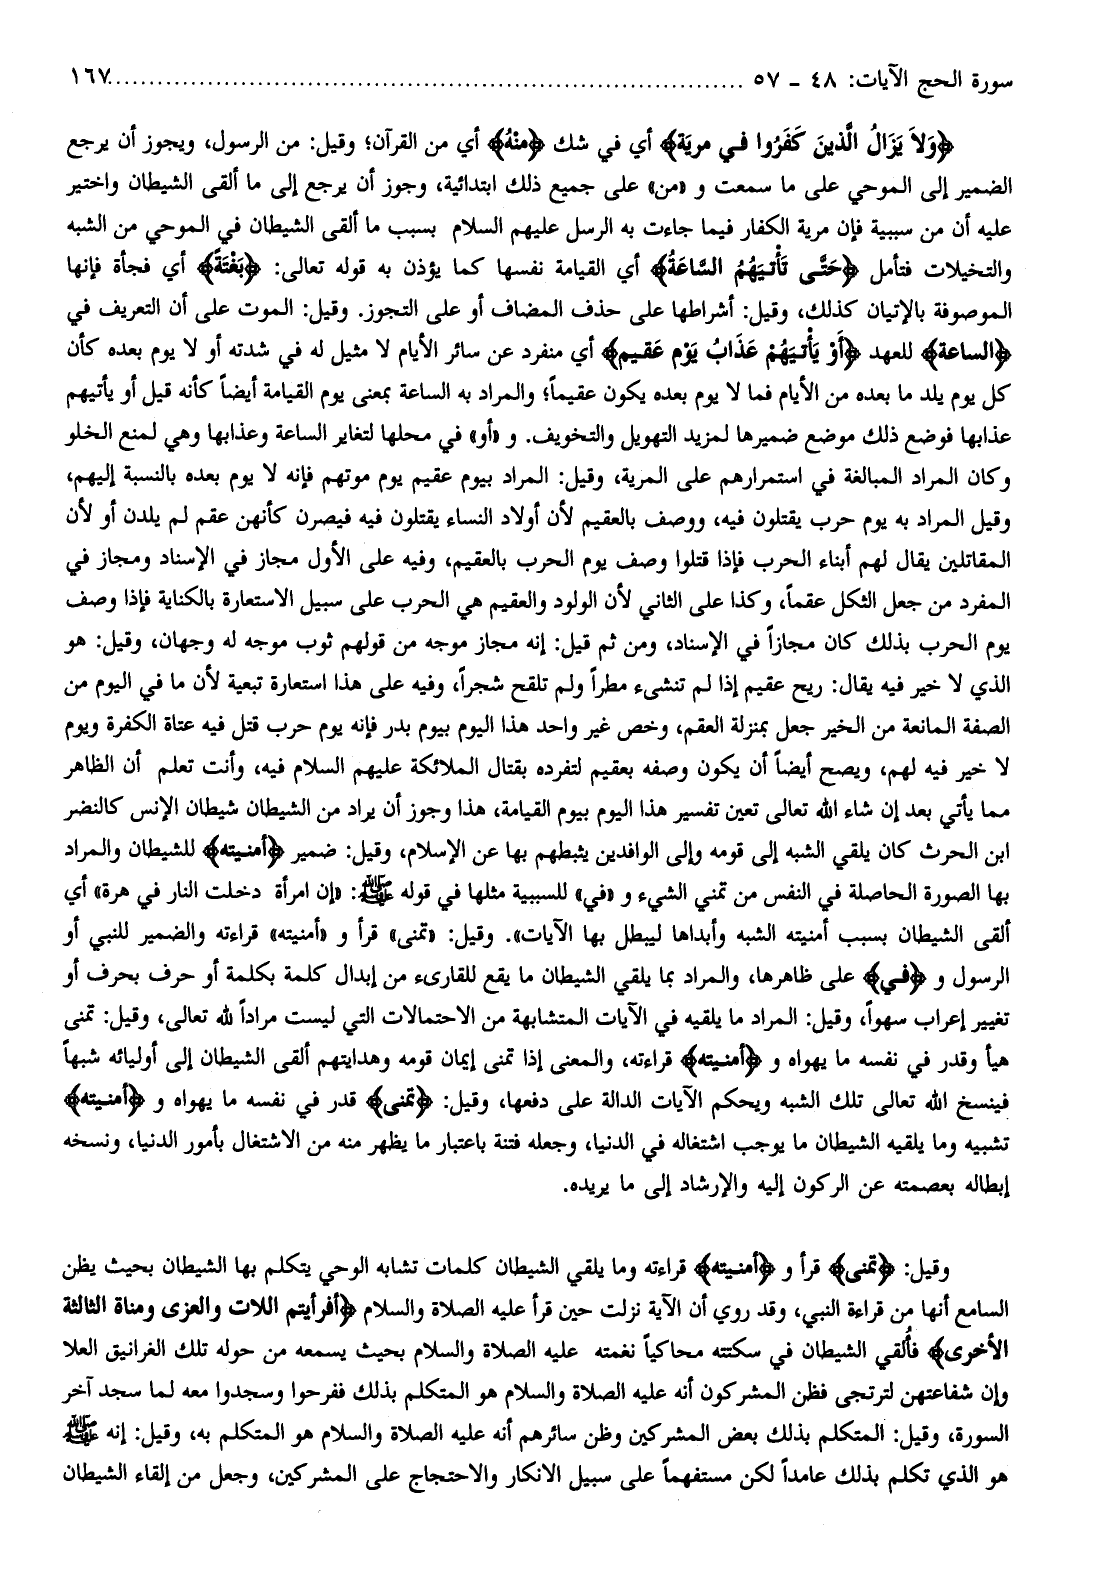 سورة الحج الآيات: ٤٨ - ٥٧ ............................................................................ ١٦٧
﴿وَلاَ يَزَالُ الَّذينَ كَفَرُوا في مريَة﴾ أي في شك ﴿منْهُ﴾ أي من القرآن؛ وقيل: من الرسول، ويجوز أن يرجع
الضمير إلى الموحي على ما سمعت و «من» على جميع ذلك ابتدائية، وجوز أن يرجع إلى ما ألقى الشيطان واختير
عليه أن من سببية فإن مرية الكفار فيما جاءت به الرسل عليهم السلام بسبب ما ألقى الشيطان في الموحي من الشبه
والتخيلات فتأمل ﴿حَتَّى تَأْتيَهُمُ السَّاعَةُ﴾ أي القيامة نفسها كما يؤذن به قوله تعالى: ﴿بَغْتَةً﴾ أي فجأة فإنها
الموصوفة بالإتيان كذلك، وقيل: أشراطها على حذف المضاف أو على التجوز. وقيل: الموت على أن التعريف في
﴿الساعة﴾ للعهد ﴿أَوْ يَأْتيَهُمْ عَذَابُ يَوْم عَقيم﴾ أي منفرد عن سائر الأيام لا مثيل له في شدته أو لا يوم بعده كأن
كل يوم يلد ما بعده من الأيام فما لا يوم بعده يكون عقيماً؛ والمراد به الساعة بمعنى يوم القيامة أيضاً كأنه قيل أو يأتيهم
عذابها فوضع ذلك موضع ضميرها لمزيد التهويل والتخويف. و «أو» في محلها لتغاير الساعة وعذابها وهي لمنع الخلو
وكان المراد المبالغة في استمرارهم على المرية، وقيل: المراد بيوم عقيم يوم موتهم فإنه لا يوم بعده بالنسبة إليهم،
وقيل المراد به يوم حرب يقتلون فيه، ووصف بالعقيم لأن أولاد النساء يقتلون فيه فيصرن كأنهن عقم لم يلدن أو لأن
المقاتلين يقال لهم أبناء الحرب فإذا قتلوا وصف يوم الحرب بالعقيم، وفيه على الأول مجاز في الإسناد ومجاز في
المفرد من جعل الثكل عقماً، وكذا على الثاني لأن الولود والعقيم هي الحرب على سبيل الاستعارة بالكناية فإذا وصف
يوم الحرب بذلك كان مجازاً في الإسناد، ومن ثم قيل: إنه مجاز موجه من قولهم ثوب موجه له وجهان، وقيل: هو
الذي لا خير فيه يقال: ريح عقيم إذا لم تنشىء مطراً ولم تلقح شجراً، وفيه على هذا استعارة تبعية لأن ما في اليوم من
الصفة المانعة من الخير جعل بمنزلة العقم، وخص غير واحد هذا اليوم بيوم بدر فإنه يوم حرب قتل فيه عتاة الكفرة ويوم
لا خير فيه لهم، ويصح أيضاً أن يكون وصفه بعقيم لتفرده بقتال الملائكة عليهم السلام فيه، وأنت تعلم أن الظاهر
مما يأتي بعد إن شاء الله تعالى تعين تفسير هذا اليوم بيوم القيامة، هذا وجوز أن يراد من الشيطان شيطان الإنس كالنضر
ابن الحرث كان يلقي الشبه إلى قومه وإلى الوافدين يثبطهم بها عن الإسلام، وقيل: ضمير ﴿أمنيته﴾ للشيطان والمراد
بها الصورة الحاصلة في النفس من تمني الشيء و «في» للسببية مثلها في قوله ﷺ: «إن امرأة دخلت النار في هرة» أي
ألقى الشيطان بسبب أمنيته الشبه وأبداها ليبطل بها الآيات». وقيل: «تمنى» قرأ و «أمنيته» قراءته والضمير للنبي أو
الرسول و ﴿في﴾ على ظاهرها، والمراد بما يلقي الشيطان ما يقع للقارىء من إبدال كلمة بكلمة أو حرف بحرف أو
تغيير إعراب سهواً، وقيل: المراد ما يلقيه في الآيات المتشابهة من الاحتمالات التي ليست مراداً لله تعالى، وقيل: تمنى
هيأ وقدر في نفسه ما يهواه و ﴿أمنيته﴾ قراءته، والمعنى إذا تمنى إيمان قومه وهدايتهم ألقى الشيطان إلى أوليائه شبهاً
فينسخ الله تعالى تلك الشبه ويحكم الآيات الدالة على دفعها، وقيل: ﴿تمنى﴾ قدر في نفسه ما يهواه و ﴿أمنيته﴾
تشبيه وما يلقيه الشيطان ما يوجب اشتغاله في الدنيا، وجعله فتنة باعتبار ما يظهر منه من الاشتغال بأمور الدنيا، ونسخه
إبطاله بعصمته عن الركون إليه والإرشاد إلى ما يريده.
وقيل: ﴿تمنى﴾ قرأ و ﴿أمنيته﴾ قراءته وما يلقي الشيطان كلمات تشابه الوحي يتكلم بها الشيطان بحيث يظن
السامع أنها من قراءة النبي، وقد روي أن الآية نزلت حين قرأ عليه الصلاة والسلام ﴿أفرأيتم اللات والعزى ومناة الثالثة
الأخرى﴾ فأُلقي الشيطان في سكتته محاكياً نغمته عليه الصلاة والسلام بحيث يسمعه من حوله تلك الغرانيق العلا
وإن شفاعتهن لترتجى فظن المشركون أنه عليه الصلاة والسلام هو المتكلم بذلك ففرحوا وسجدوا معه لما سجد آخر
السورة، وقيل: المتكلم بذلك بعض المشركين وظن سائرهم أنه عليه الصلاة والسلام هو المتكلم به، وقيل: إنه ﷺ
هو الذي تكلم بذلك عامداً لكن مستفهماً على سبيل الانكار والاحتجاج على المشركين، وجعل من إلقاء الشيطان